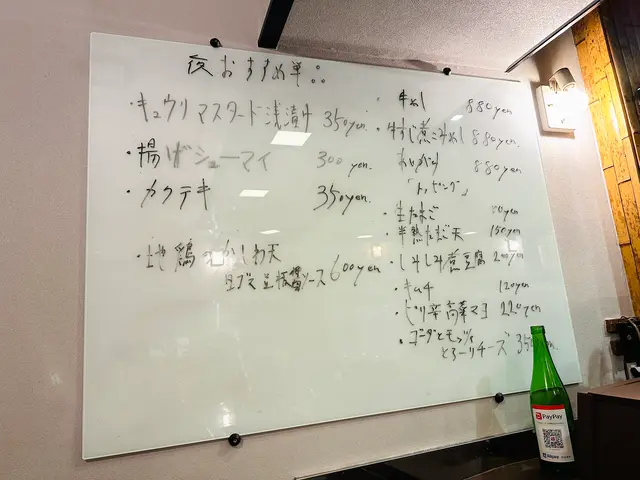 夜おすすめ単::
・キュウリマスタード浅漬け 350yen
・揚げシューマイ 300 yen.
・カクテキ 350yen
・地鶏 かしわ天
ソース 600yen
・牛めし 880yen
・牛すじ煮こみめし 880yen
あいがけ 880yen
「トッピング」
・生たまご 80yen
・半熟たまご天 150yen
・しみしみ煮豆腐 200yen
・キムチ 120yen
・ピリ辛高菜マヨ 220yen
・ゴーダとモッツァ
とろーりチーズ 350yen.
PayPay
PayPay